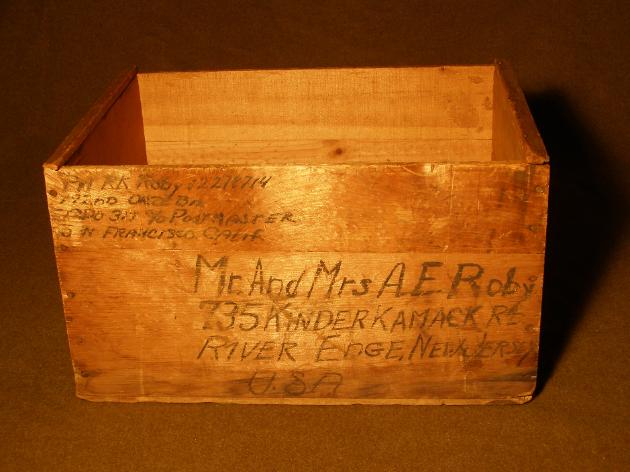 RK Roby 32216714
Bn
APO % PostMaster
San Francisco Calif
Mr. And Mrs A E Roby
735 KinderKamack Rd
River Edge, New Jersey
U.S.A